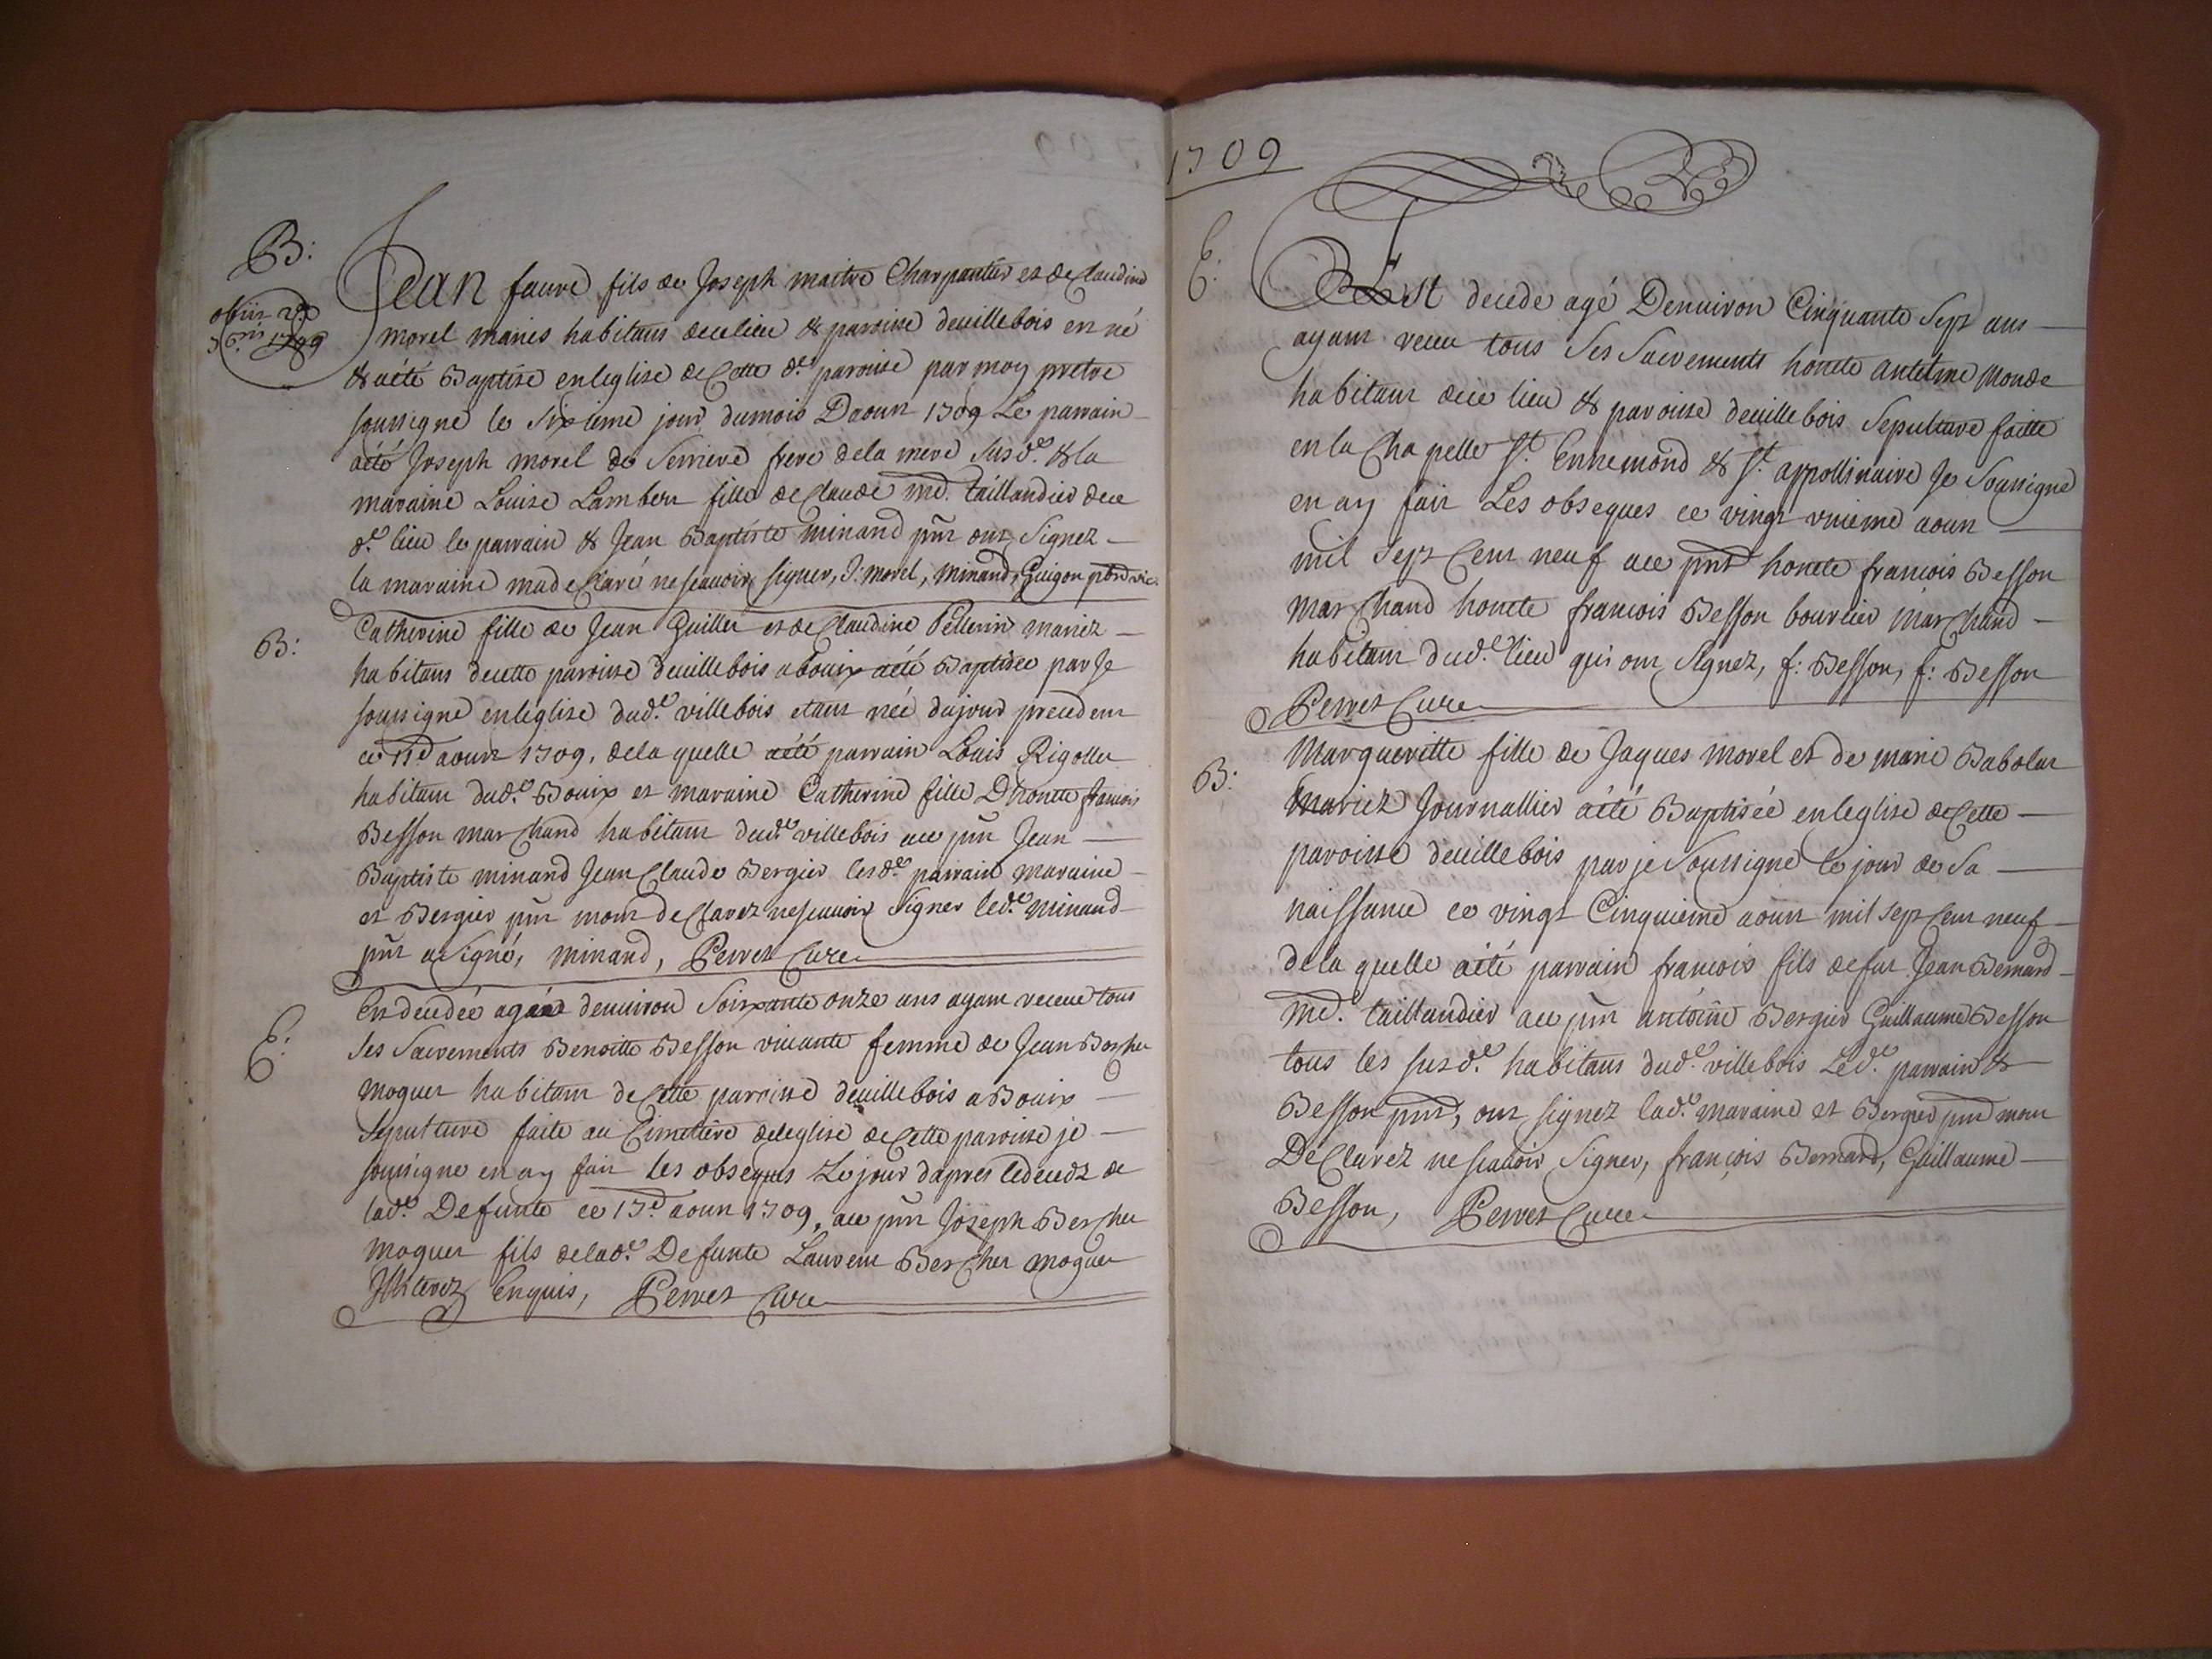 B:
obiit 2e
Jean fauvre fils de Joseph maitre Charpantier et de Claudine
morel mariés habitans decelieu & paroisse deuillebois est né
& aété Baptisé enleglise de Cette de paroisse par moy pretre
soussigné le sixieme jour dumois Daoust 1709 Le parrain
aété Joseph morel de Serriere frere dela mere susde. & la
maraine Louise Lambert fille de Claude md. taillandier dece
de lieu le parrain & Jean Baptiste minand pnt ont Signez
la maraine madeClaré nesçauoir signer, J. morel, minand, Guigou pbre vic.
B:
Catherine fille de Jean Guillet et de Claudine Pellerin mariez
habitans decette paroisse deuillebois abouix aété Baptisée par Je
soussigné enleglise dude. villebois etant née dujour precedent
ce 11e aoust 1709. dela quelle aété parrain Louis Rigollet
habitant dude. Bouix et maraine Catherine fille Dhonete francois
Besson marChand habitant dude. villebois ace pnt Jean
Baptiste minand Jean Claude Bergier lesde. parrain maraine
et Bergier pnt mont deClarez nesçauoir Signer lede. minand
pnt a Signé, minand, Perret Curé
E:
Est decedée agée denuiron Soixante onze ans ayant receue tous
ses Sacrements Benoitte Besson viuante femme de Jean Bercher
moguet habitant de Cette paroisse deuillebois a Bouix
Sepulture faite au Cimetiere deleglise de Cette paroisse je
soussigné en ay fait les obseques Le jour dapres ledecedz de
lade. Defunte ce 17e aoust 1709, ace pnt Joseph Bercher
moguet fils delade. Defunte Laurent Bercher moguet
Illiterez Enquis, Perret Curé
1709
E:
Est decede agé Denuiron Cinquante Sept ans
ayant receu tous Ses Sacrements honete antelme Monde
habitant dece lieu & paroisse deuillebois Sepulture faitte
en la Chapelle St. Ennemond & St. appollinaire Je Soussigné
en ay fait Les obseques ce vingt vnieme aoust
mil Sept Cent neuf ace pnt honete francois Besson
marChand honete francois Besson bourrier marChand
habitant dude. lieu qui ont Signez, f: Besson, f: Besson
Perret Curé
B:
Margueritte fille de Jaques morel et de marie Babolat
mariez Journallier aété Baptisée enleglise deCette
paroisse deuillebois par je Soussigné le jour de Sa
naissance ce vingt Cinquieme aoust mil sept Cent neuf
dela quelle aété parrain francois fils defut Jean Bernard
md. taillandier ace pnt antoine Bergier Guillaume Besson
tous les susde. habitans dude. villebois Lede. parrain &
Besson pnt, ont signez lade. maraine et Bergier pnt mont
DeClarez nesçauoir Signer, françois Bernard, Guillaume
Besson, Perret Curé